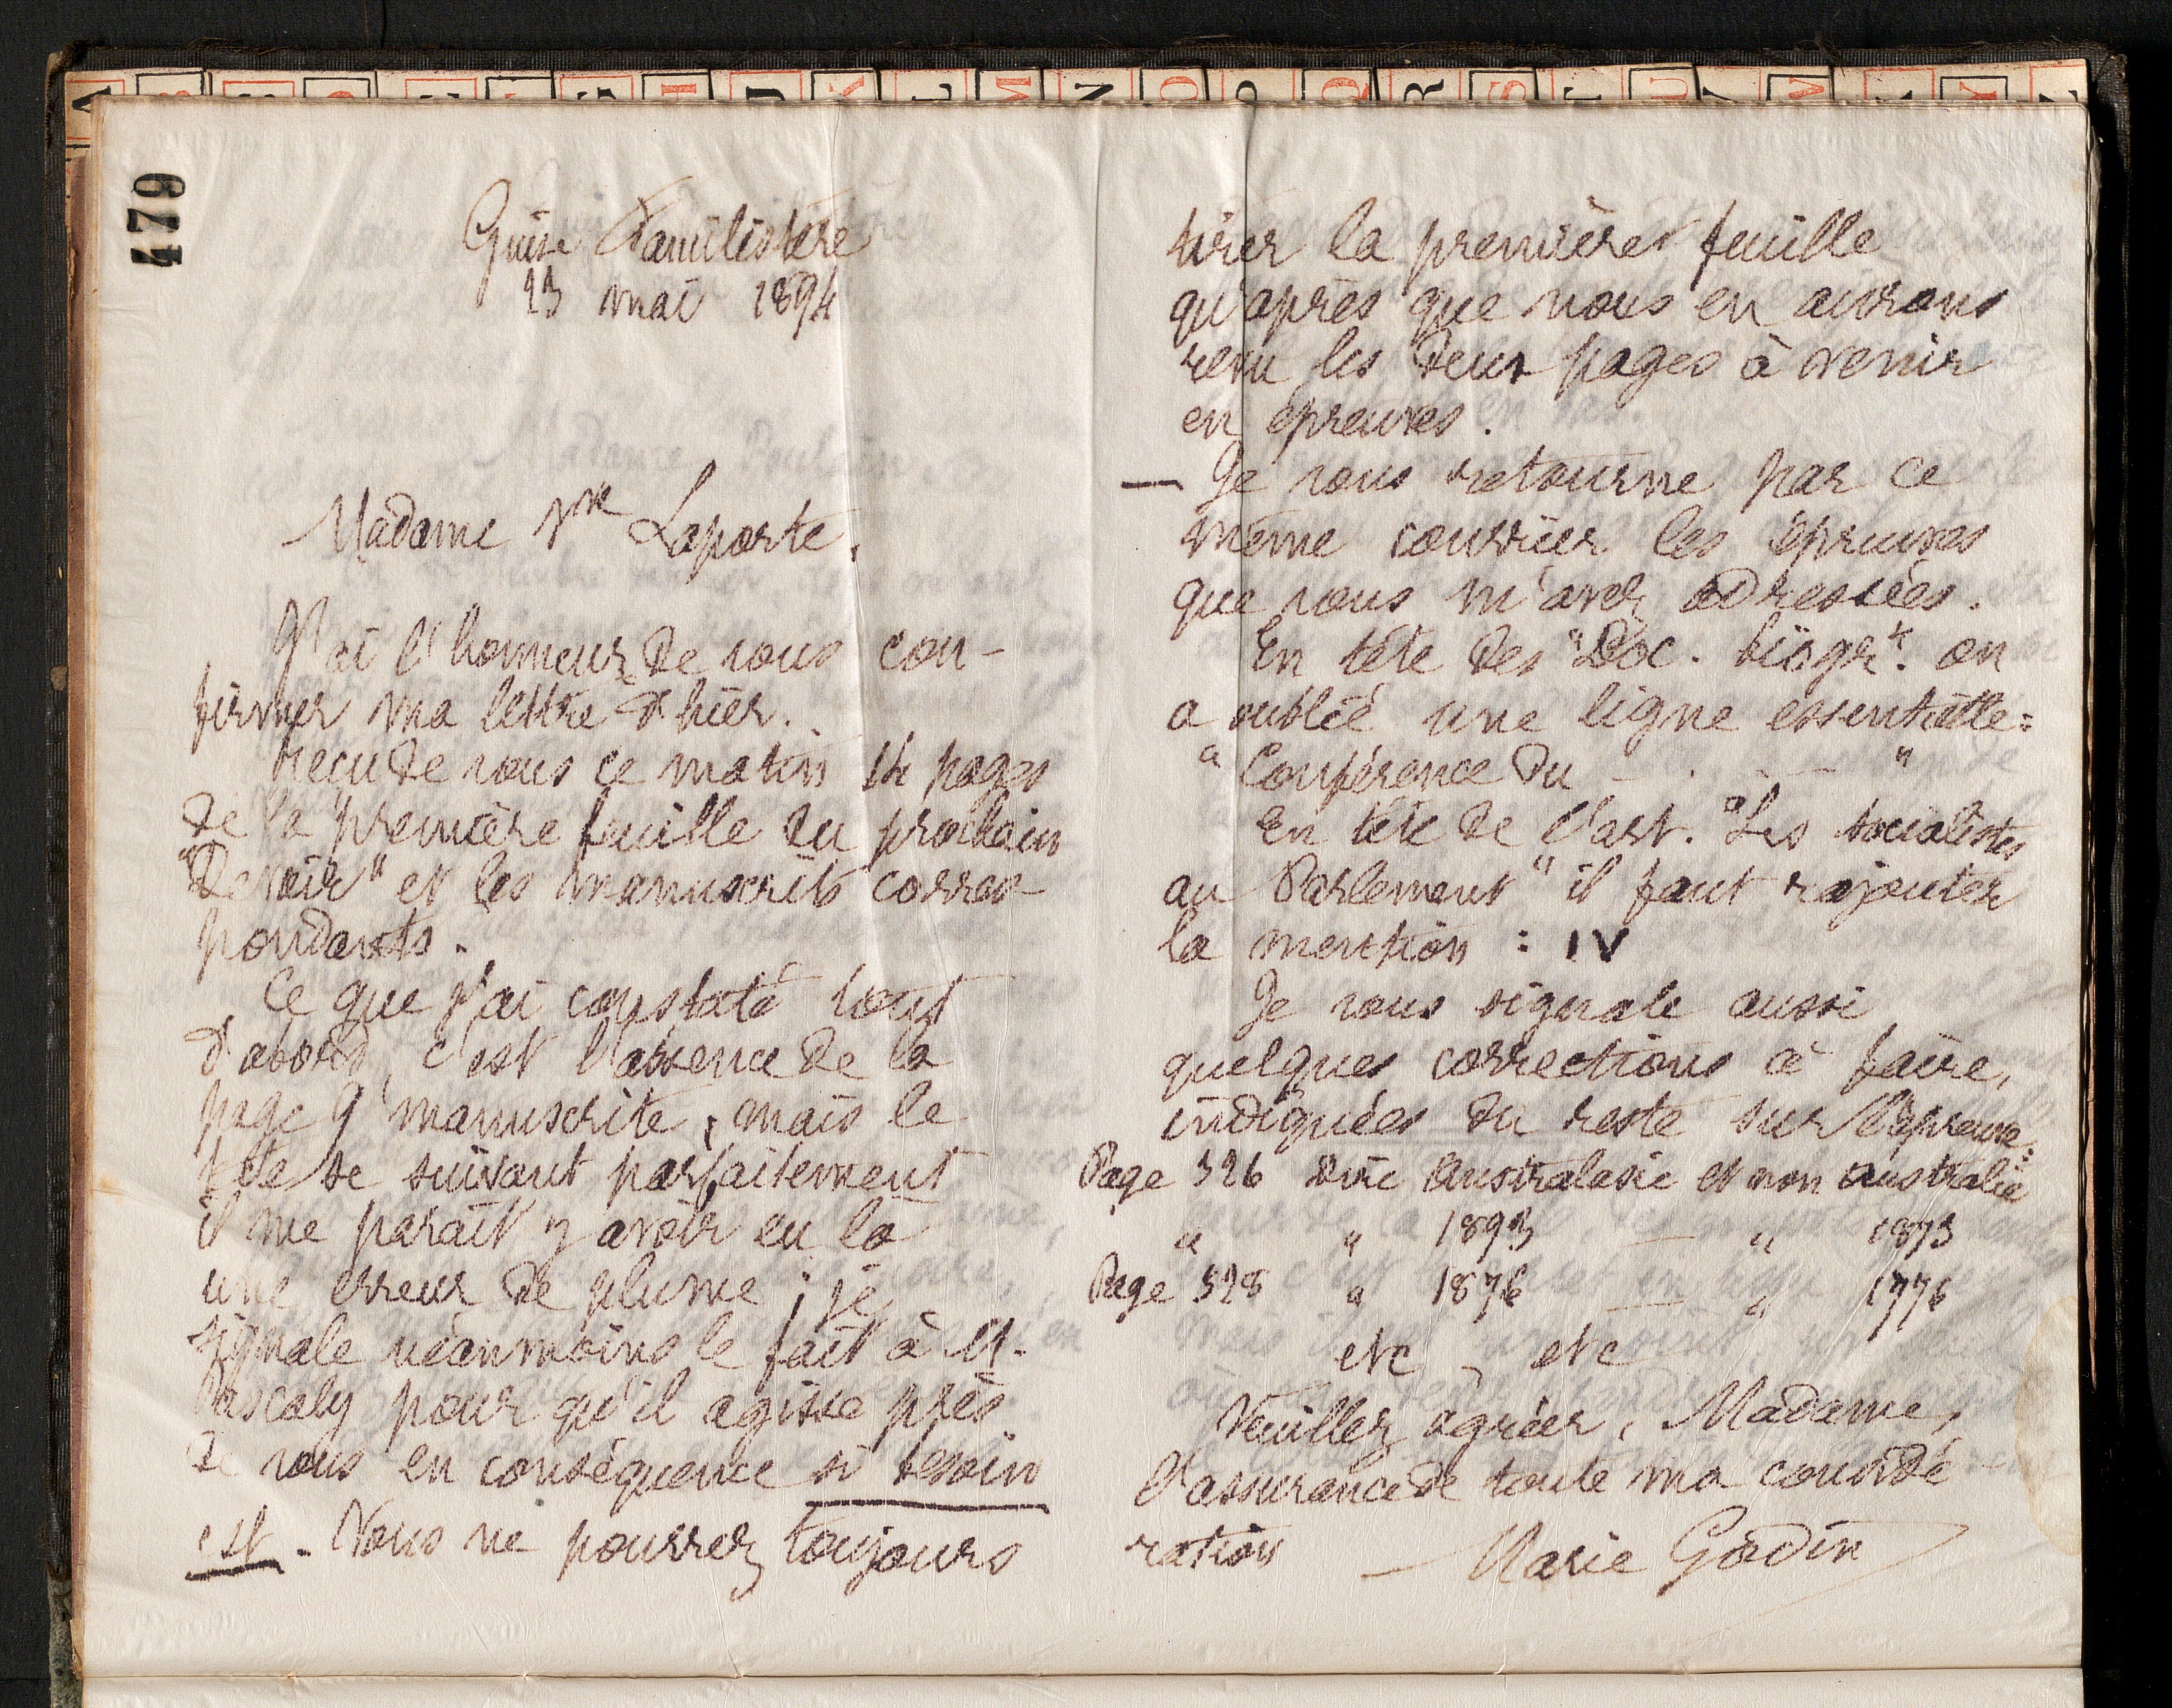 479
Guise Familistère
23 mai 1894
Madame Vve Laporte,
J'ai l'honneur de vous con-
firmer ma lettre d'hier.
Reçu de vous ce matin 14 pages
de la première feuille du prochain
"Devoir" et les manuscrits corres-
pondants.
Ce que j'ai constaté tout
d'abord, c'est l'absence de la
page 9 manuscrite, mais le
texte se suivant parfaitement
il me paraît y avoir eu là
une erreur de plume ; je
signale néanmoins le fait à M.
Pascaly pour qu'il agisse près
de vous en conséquence si besoin
est. Vous ne pourrez toujours
tirer la première feuille
qu'après que nous en aurons
revu les deux pages à venir
en épreuves.
— Je vous retourne par ce
même courrier les épreuves
que vous m'avez adressées.
En tête des "Doc. biogr." on
a oublié une ligne essentielle :
"Conférence du - . - — "
En tête de l'art. "Les socialistes
au Parlement" il faut rajouter
la mention : IV
Je vous signale aussi
quelques corrections à faire,
indiquées du reste sur l'épreuve :
Page 326 Dire Australasie et non Australie
" " 1893 — " 1873
Page 328 " 1876 — " 1776
etc, etc
Veuillez agréer, Madame,
l'assurance de toute ma considé-
ration — Marie Godin